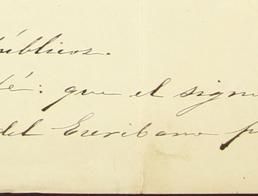 públicos.
fé: que el signo
del Escribano